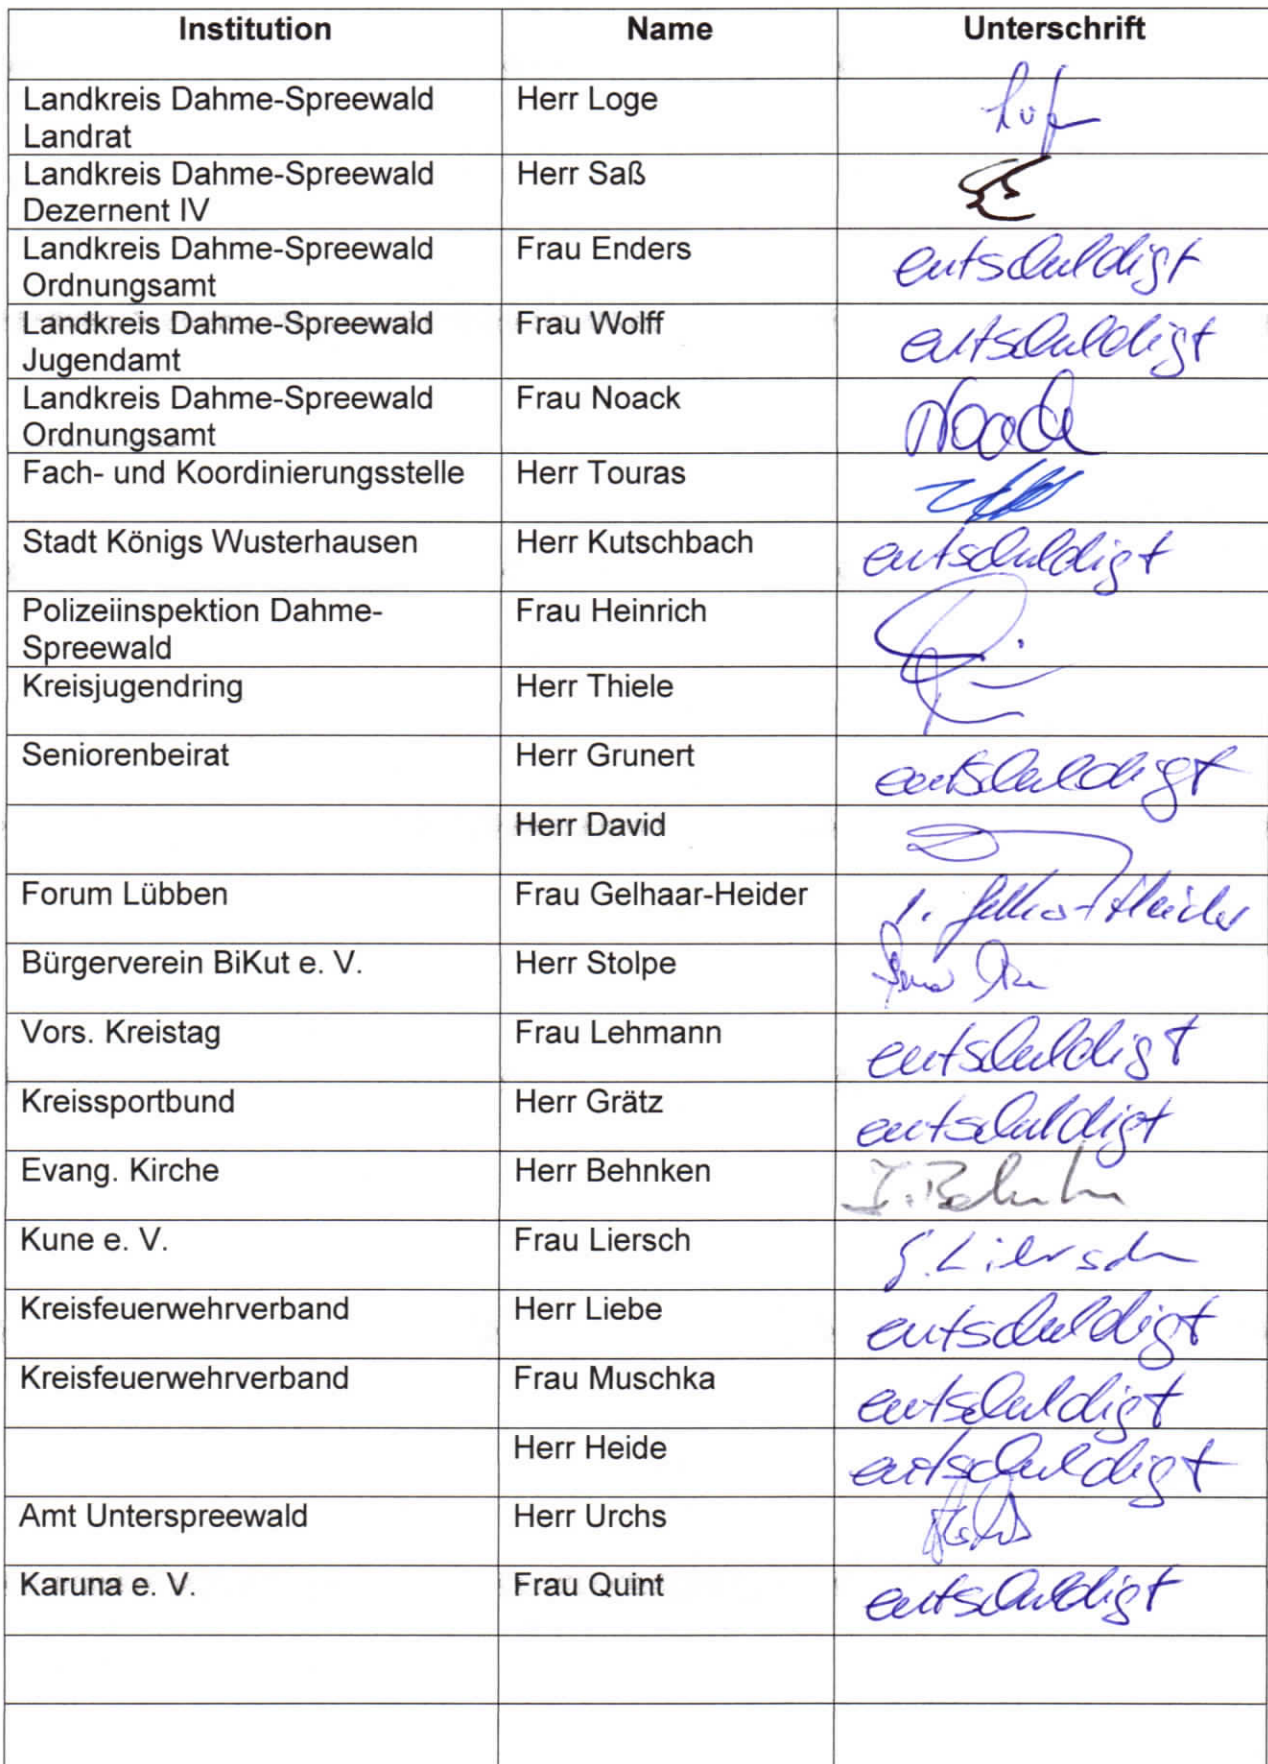 Institution Name Unterschrift
Landkreis Dahme-Spreewald Herr Loge
Landrat
Landkreis Dahme-Spreewald Herr Saß
Dezernent IV
Landkreis Dahme-Spreewald Frau Enders entschuldigt
Ordnungsamt
Landkreis Dahme-Spreewald Frau Wolff entschuldigt
Jugendamt
Landkreis Dahme-Spreewald Frau Noack Noack
Ordnungsamt
Fach- und Koordinierungsstelle Herr Touras
Stadt Königs Wusterhausen Herr Kutschbach entschuldigt
Polizeiinspektion Dahme- Frau Heinrich
Spreewald
Kreisjugendring Herr Thiele
Seniorenbeirat Herr Grunert entschuldigt
Herr David
Forum Lübben Frau Gelhaar-Heider
Bürgerverein BiKut e. V. Herr Stolpe
Vors. Kreistag Frau Lehmann entschuldigt
Kreissportbund Herr Grätz entschuldigt
Evang. Kirche Herr Behnken
Kune e. V. Frau Liersch Liersch
Kreisfeuerwehrverband Herr Liebe entschuldigt
Kreisfeuerwehrverband Frau Muschka entschuldigt
Herr Heide entschuldigt
Amt Unterspreewald Herr Urchs
Karuna e. V. Frau Quint entschuldigt